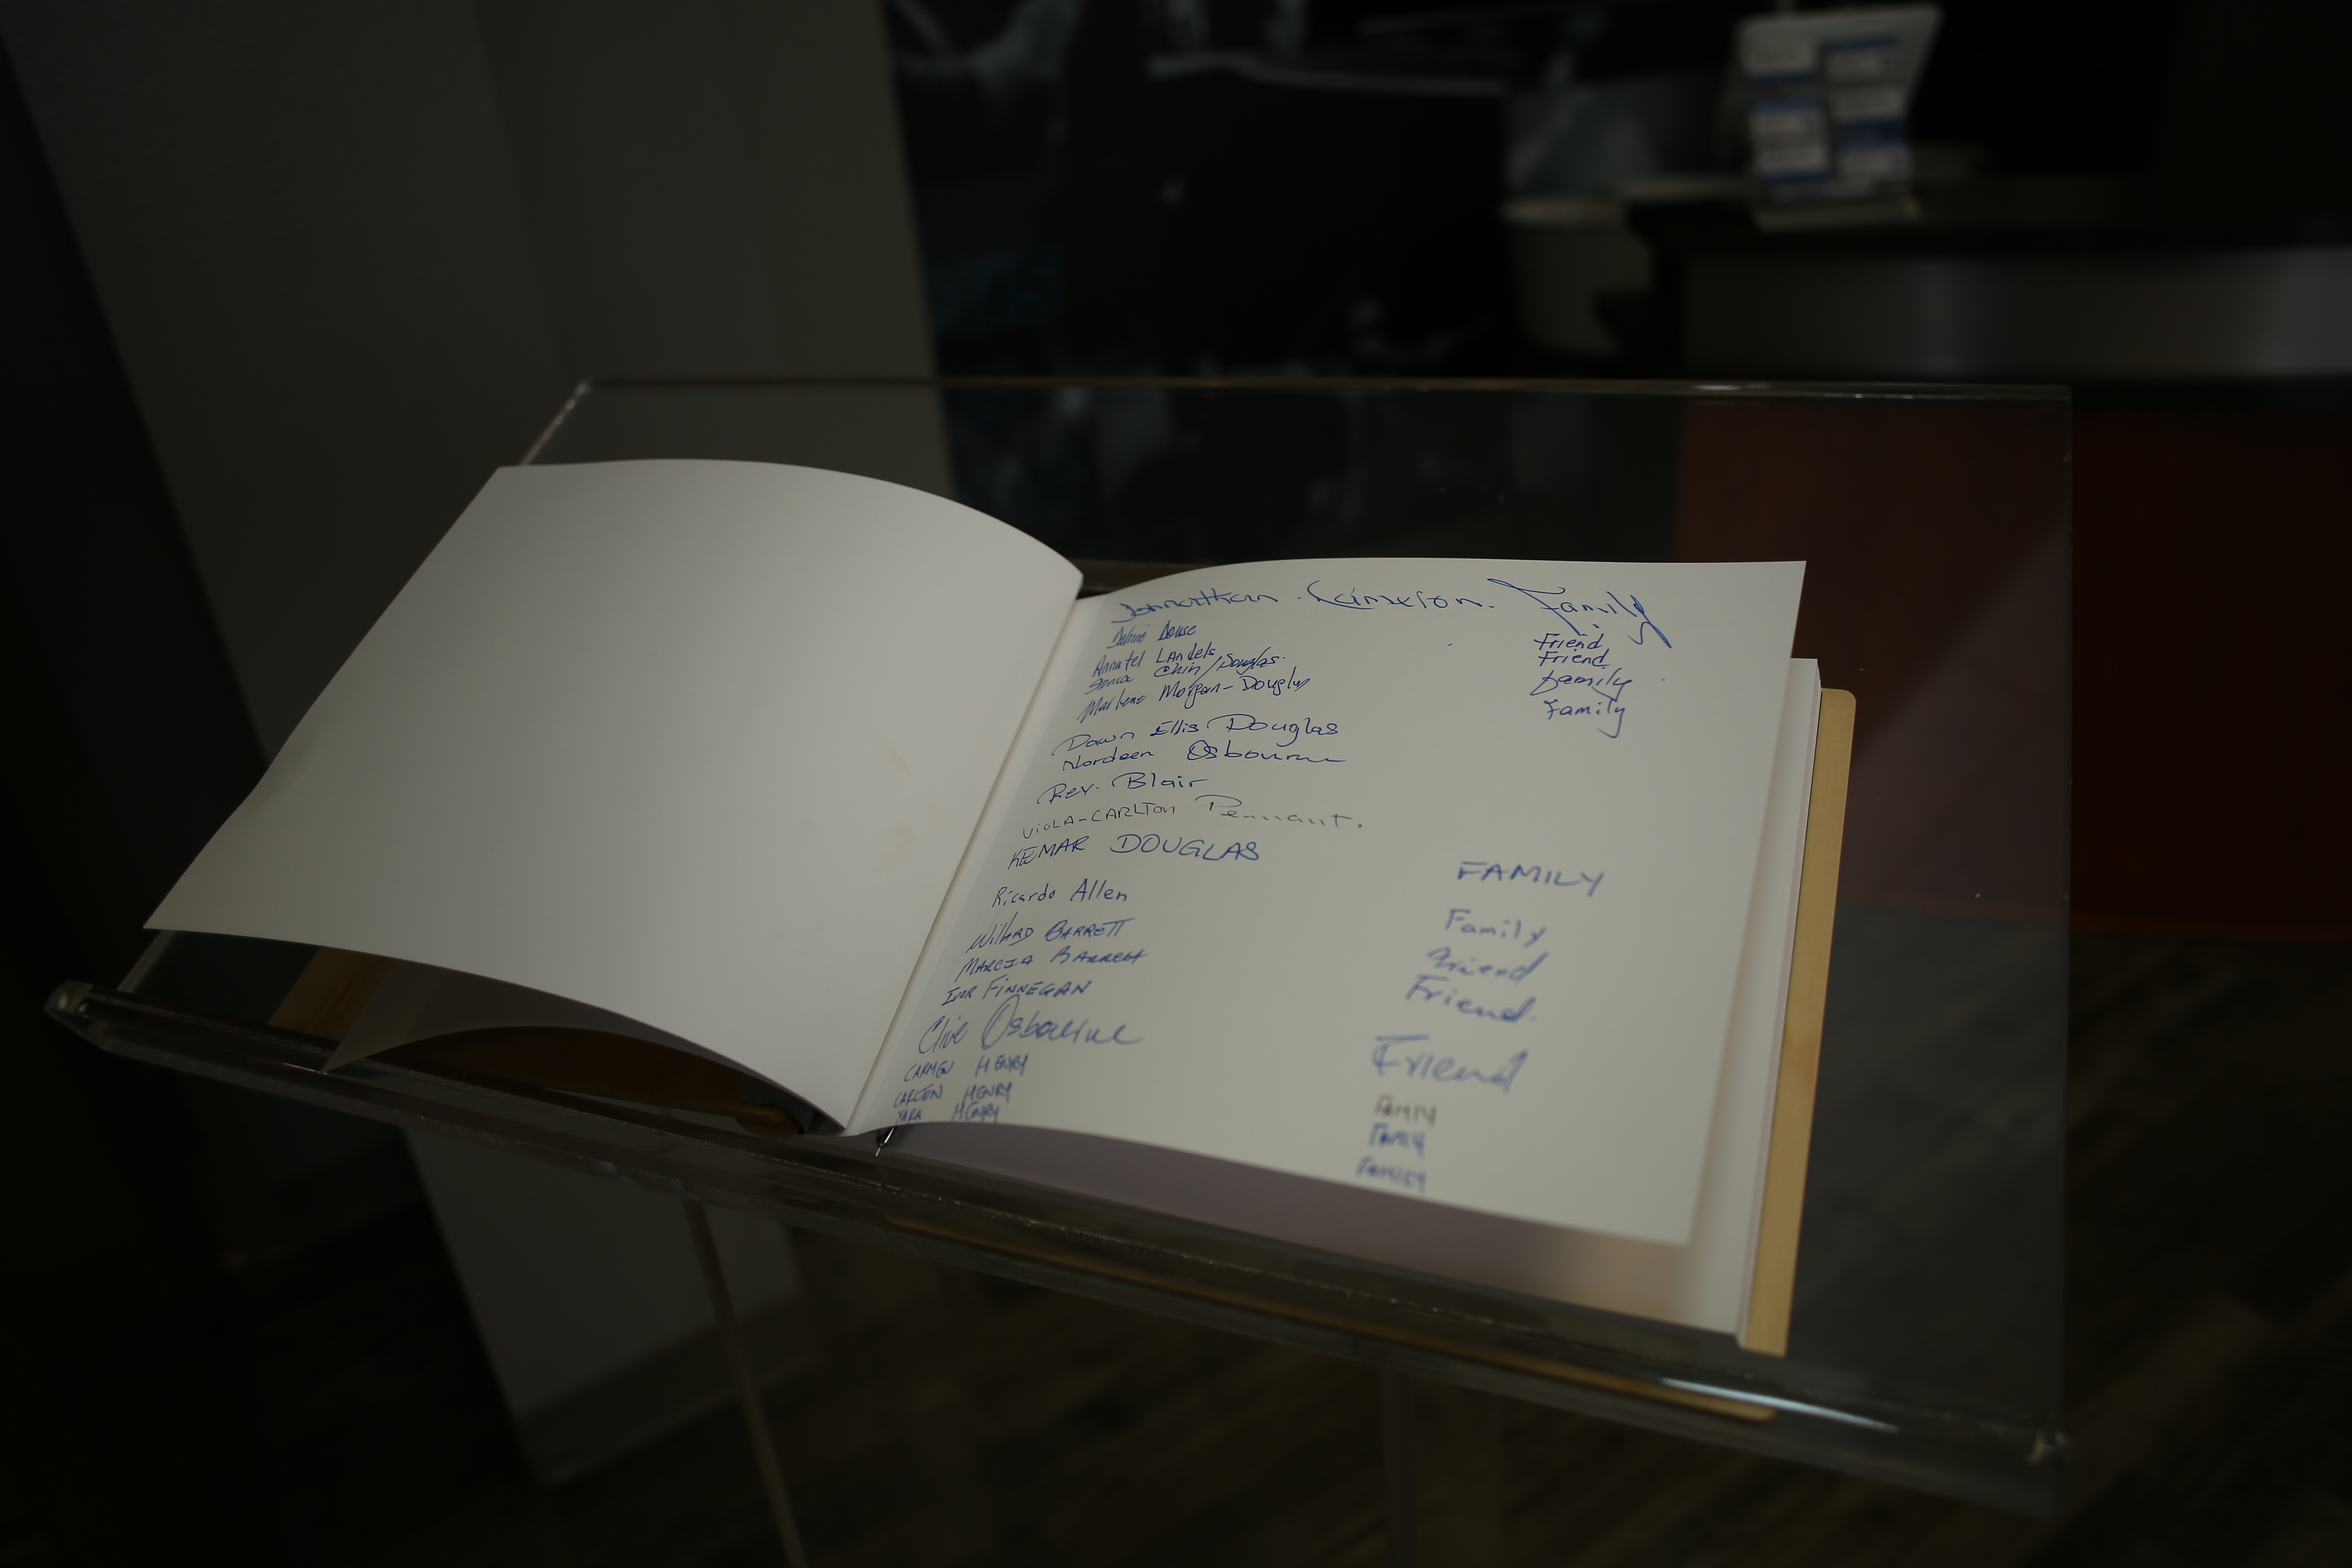 Johnathan Cameron. Family
Douse Friend
Annatel Landels Friend
Chin/Douglas. family
Marlene Morgan-Douglas Family
Dawn Ellis Douglas
Nordeen Osbourne
Rev. Blair
VIOLA-CARLTON Pennant.
KEMAR DOUGLAS FAMILY
Ricardo Allen Family
WillARD BARRETT Friend
MARCIA BARRETT Friend.
IVOR FINNEGAN
Clive Osbourne Friend
CARMEN HENRY FAMILY
CARLTON HENRY FAMILY
YARA HENRY FAMILY